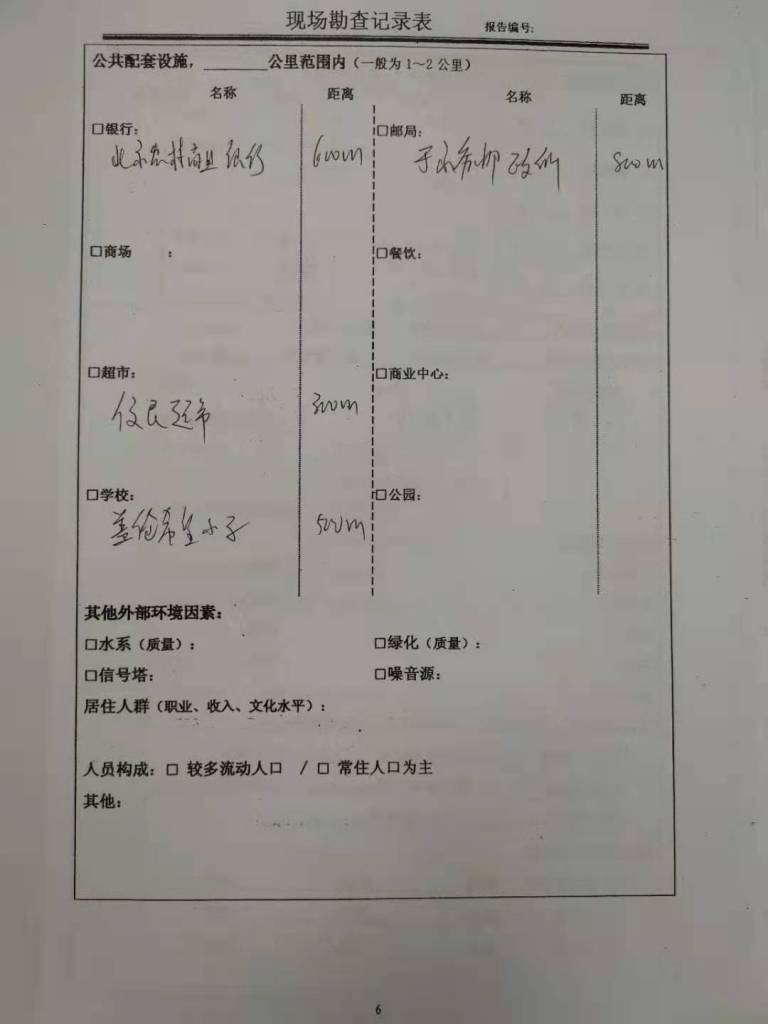 现场勘查记录表 报告编号:
公共配套设施，______公里范围内（一般为1～2公里）
名称 距离 名称 距离
□银行: □邮局:
北京农村商业银行 600m 邮政所 800m
□商场 : □餐饮:
□超市: □商业中心:
超市 300m
□学校: □公园:
希望小学 500m
其他外部环境因素:
□水系（质量）: □绿化（质量）:
□信号塔: □噪音源:
居住人群（职业、收入、文化水平）:
人员构成: □ 较多流动人口 / □ 常住人口为主
其他:
6